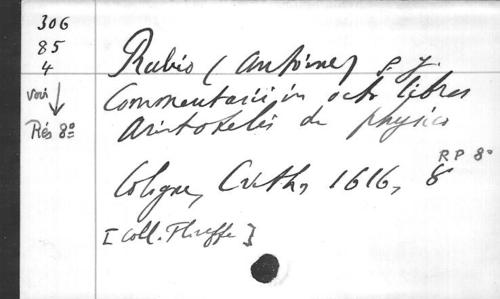 306
85
4
voir
Rés 8º
Rubio (Antoine) s. j.
Commentarii in octo libros
Aristotelis de physico
Cologne, Crith, 1616, 8º
RP 8º
[Coll.